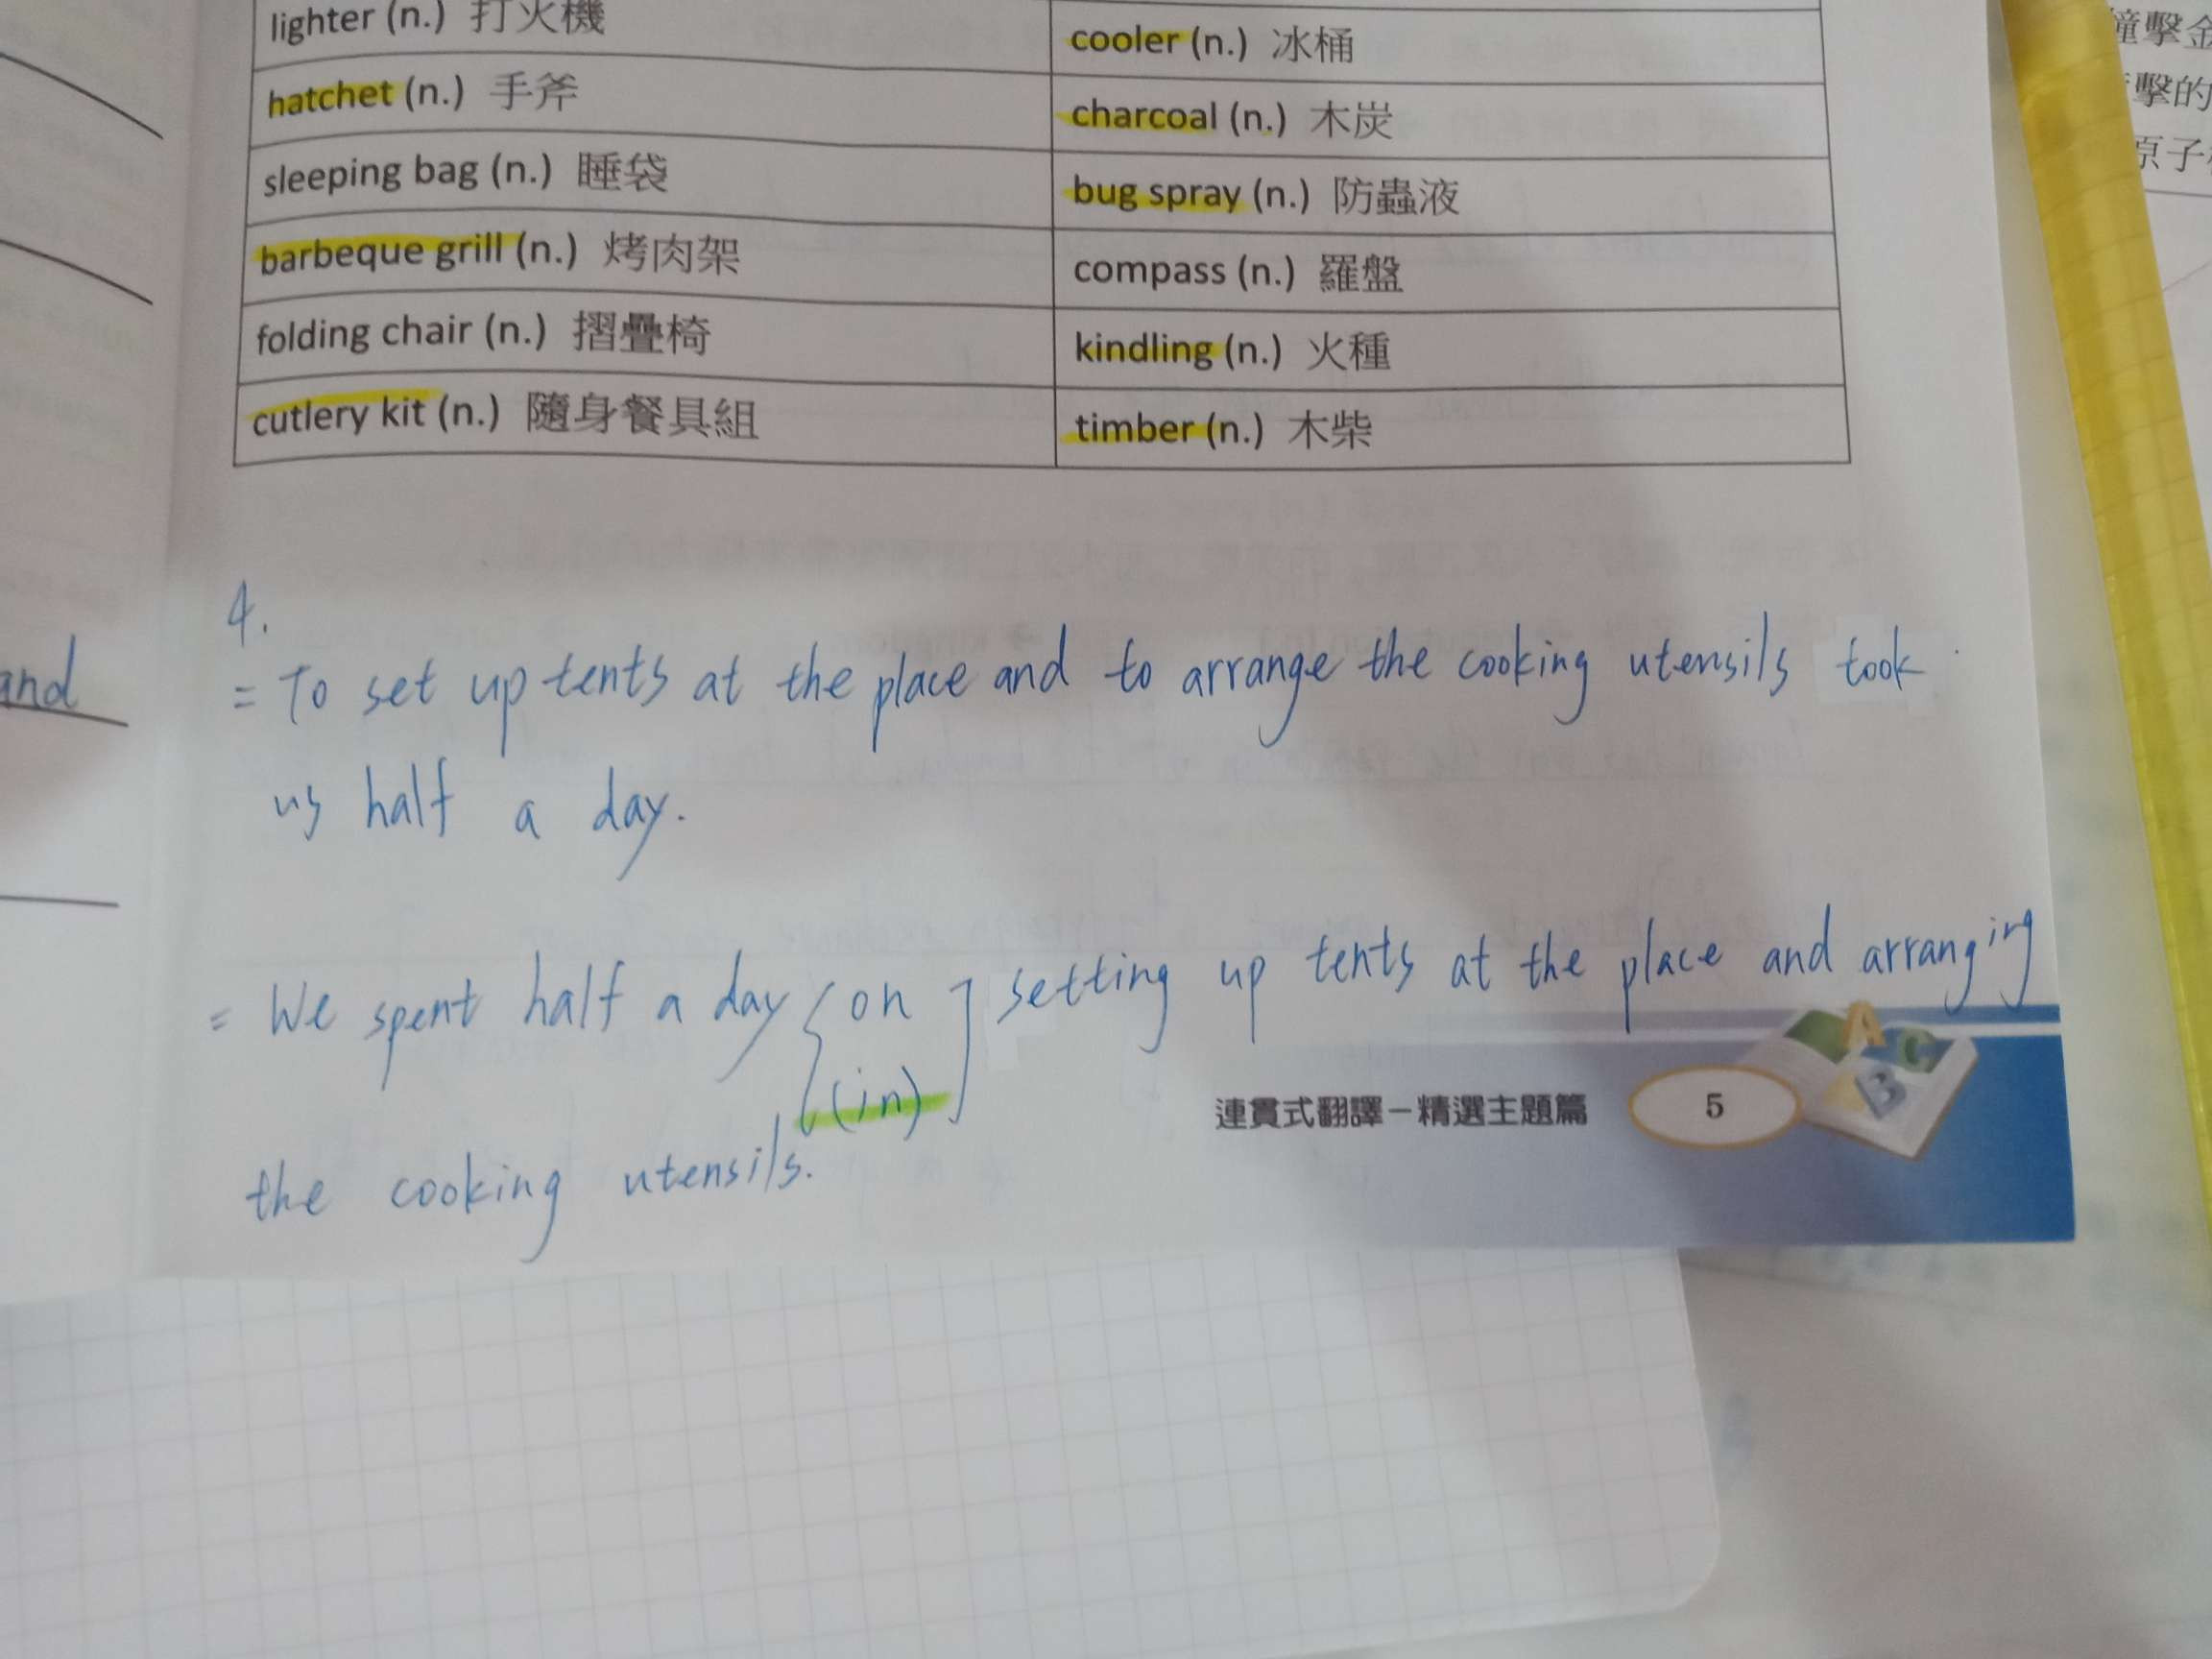 lighter (n.) 打火機
cooler (n.) 冰桶
hatchet (n.) 手斧
charcoal (n.) 木炭
sleeping bag (n.) 睡袋
bug spray (n.) 防蟲液
barbeque grill (n.) 烤肉架
compass (n.) 羅盤
folding chair (n.) 摺疊椅
kindling (n.) 火種
cutlery kit (n.) 隨身餐具組
timber (n.) 木柴
撞擊金
擊的
原子
and
4.
= To set up tents at the place and to arrange the cooking utensils took
us half a day.
= We spent half a day { on ] setting up tents at the place and arranging
(in)
the cooking utensils.
連貫式翻譯－精選主題篇 5
A B C